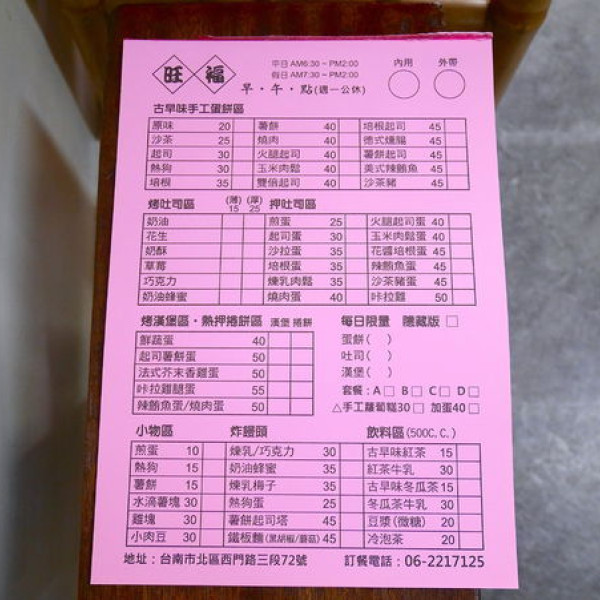 旺 福
平日 AM6:30 ~ PM2:00
假日 AM7:30 ~ PM2:00
早・午・點(週一公休)
內用 外帶
古早味手工蛋餅區
原味 20 薯餅 40 培根起司 45
沙茶 25 燒肉 40 德式燻腸 45
起司 30 火腿起司 40 薯餅起司 45
熱狗 30 玉米肉鬆 40 美式辣鮪魚 45
培根 35 雙倍起司 40 沙茶豬 45
烤吐司區 (薄)15 (厚)25 押吐司區
奶油 煎蛋 25 火腿起司蛋 40
花生 起司蛋 30 玉米肉鬆蛋 40
奶酥 沙拉蛋 35 花醬培根蛋 45
草莓 培根蛋 35 辣鮪魚蛋 45
巧克力 煉乳肉鬆 35 沙茶豬蛋 45
奶油蜂蜜 燒肉蛋 40 咔拉雞 50
烤漢堡區・熱押捲餅區 漢堡 捲餅
鮮蔬蛋 40
起司薯餅蛋 50
法式芥末香雞蛋 50
咔拉雞腿蛋 55
辣鮪魚蛋/燒肉蛋 50
每日限量 隱藏版 □
蛋餅( )
吐司( )
漢堡( )
套餐：A□ B□ C□ D□
△手工蘿蔔糕30□ 加蛋40□
小物區 炸饅頭 飲料區(500C.C.)
煎蛋 10 煉乳/巧克力 30 古早味紅茶 15
熱狗 15 奶油蜂蜜 35 紅茶牛乳 30
薯餅 15 煉乳梅子 35 古早味冬瓜茶 15
水滴薯塊 30 熱狗蛋 25 冬瓜茶牛乳 30
雞塊 30 薯餅起司塔 45 豆漿(微糖) 20
小肉豆 30 鐵板麵(黑胡椒/蘑菇) 45 冷泡茶 20
地址：台南市北區西門路三段72號 訂餐電話：06-2217125